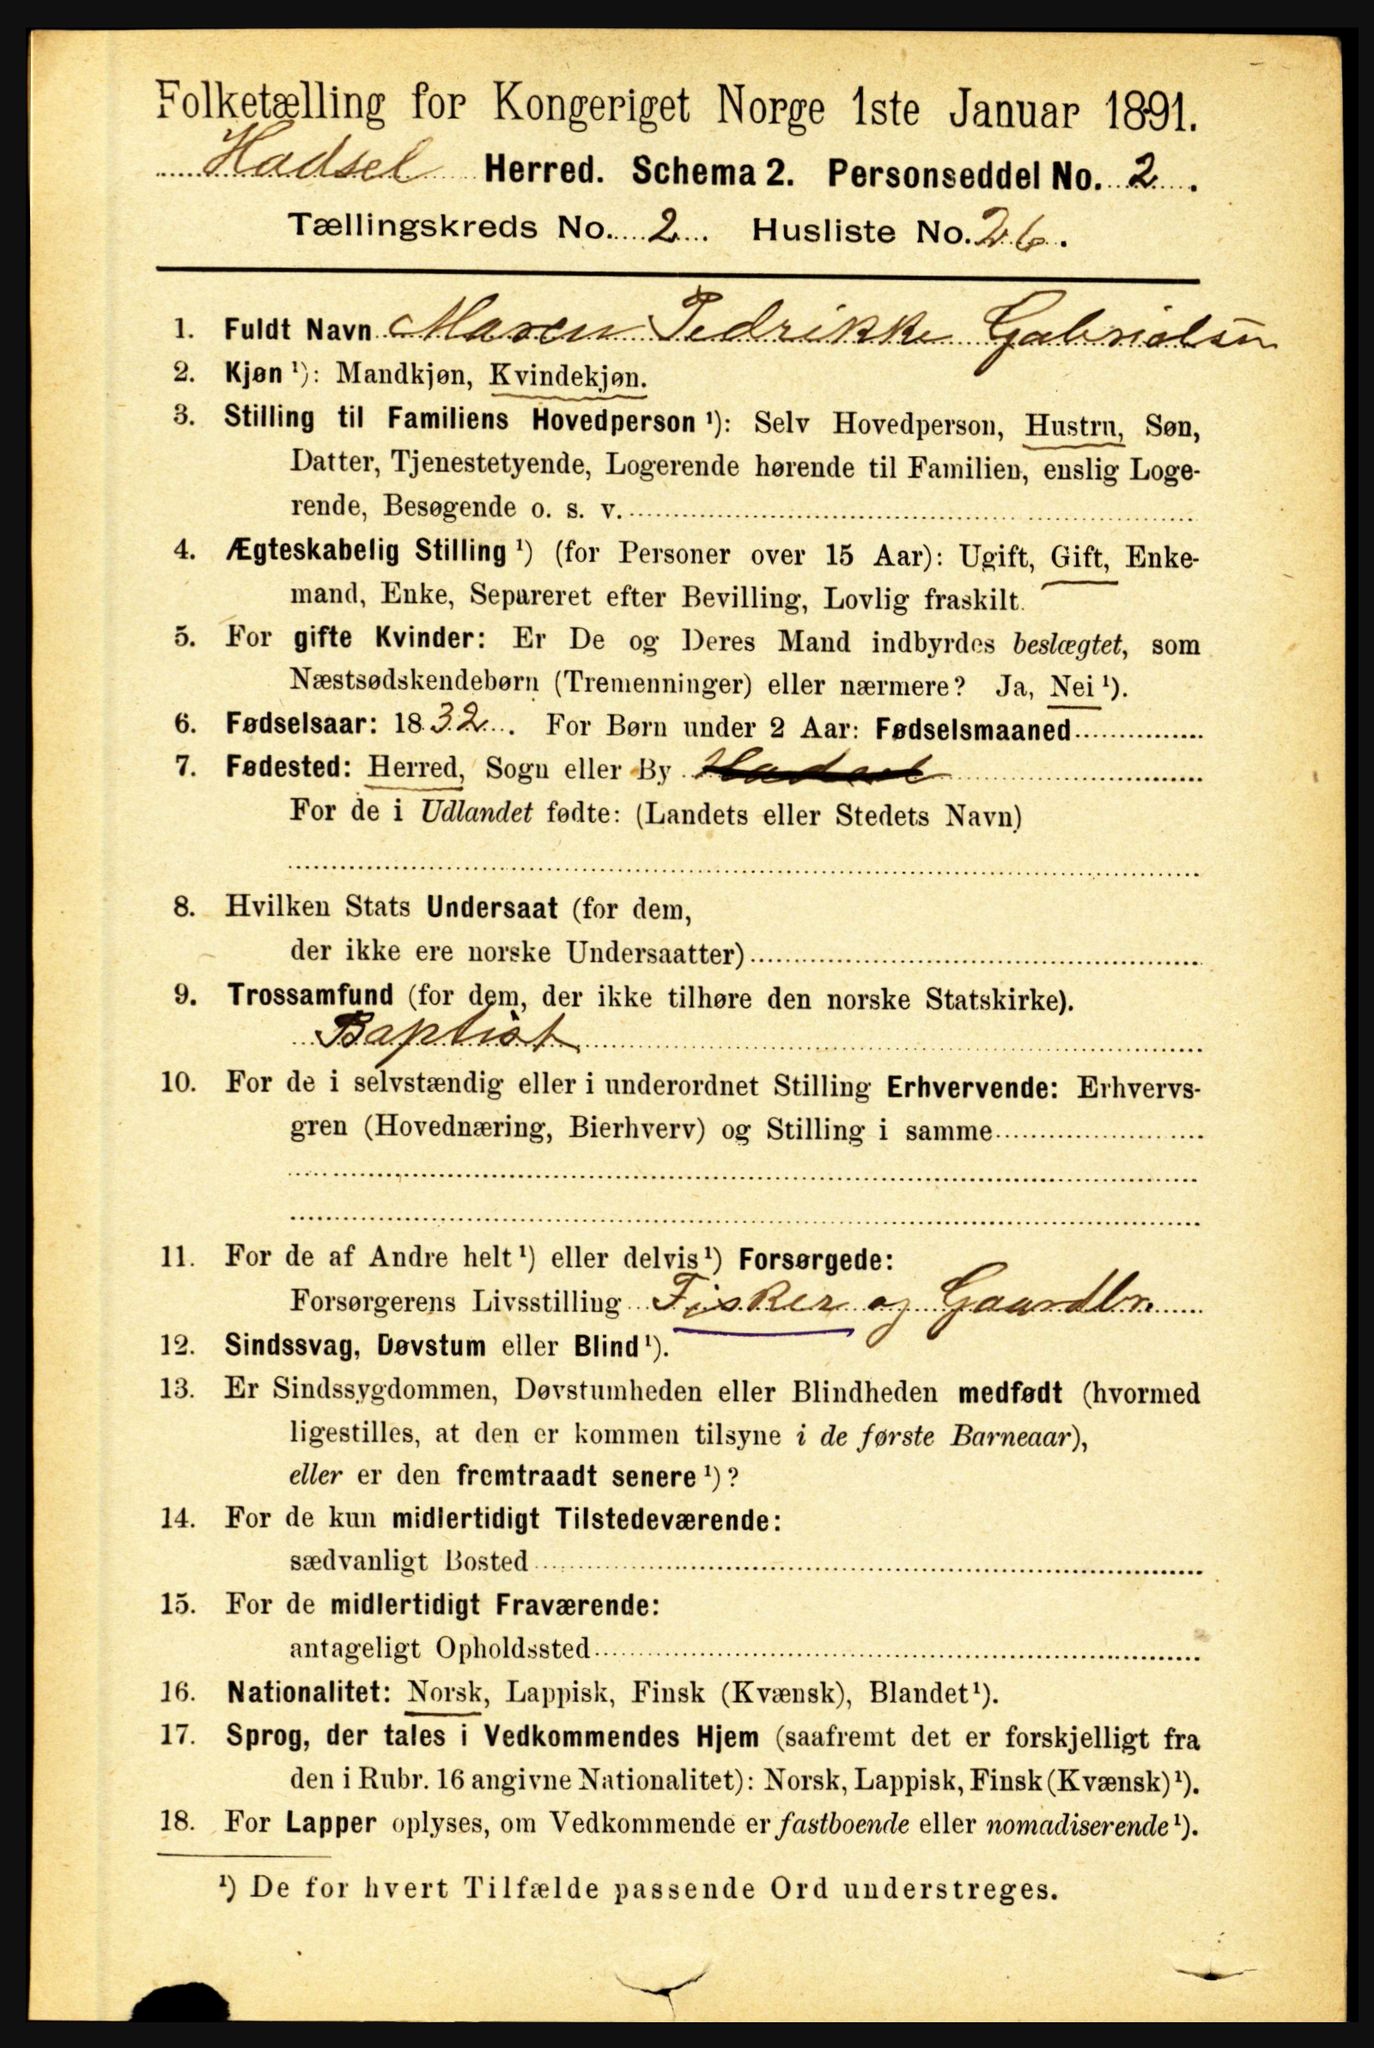 Folketælling for Kongeriget Norge 1ste Januar 1891.
Hadsel Herred. Schema 2. Personseddel No. 2.
Tællingskreds No. 2. Husliste No. 26.
1. Fuldt Navn Maren Pedrikke Gabrielsen
2. Kjøn ¹): Mandkjøn, Kvindekjøn.
3. Stilling til Familiens Hovedperson ¹): Selv Hovedperson, Hustru, Søn,
Datter, Tjenestetyende, Logerende hørende til Familien, enslig Loge-
rende, Besøgende o. s. v.
4. Ægteskabelig Stilling ¹) (for Personer over 15 Aar): Ugift, Gift, Enke-
mand, Enke, Separeret efter Bevilling, Lovlig fraskilt.
5. For gifte Kvinder: Er De og Deres Mand indbyrdes beslægtet, som
Næstsødskendebørn (Tremenninger) eller nærmere? Ja, Nei ¹).
6. Fødselsaar: 1832. For Børn under 2 Aar: Fødselsmaaned
7. Fødested: Herred, Sogn eller By Hadsel
For de i Udlandet fødte: (Landets eller Stedets Navn)
8. Hvilken Stats Undersaat (for dem,
der ikke ere norske Undersaatter)
9. Trossamfund (for dem, der ikke tilhøre den norske Statskirke).
Baptist
10. For de i selvstændig eller i underordnet Stilling Erhvervende: Erhvervs-
gren (Hovednæring, Bierhverv) og Stilling i samme
11. For de af Andre helt ¹) eller delvis ¹) Forsørgede:
Forsørgerens Livsstilling Fisker og Gaardbr.
12. Sindssvag, Døvstum eller Blind ¹).
13. Er Sindssygdommen, Døvstumheden eller Blindheden medfødt (hvormed
ligestilles, at den er kommen tilsyne i de første Barneaar),
eller er den fremtraadt senere ¹)?
14. For de kun midlertidigt Tilstedeværende:
sædvanligt Bosted
15. For de midlertidigt Fraværende:
antageligt Opholdssted
16. Nationalitet: Norsk, Lappisk, Finsk (Kvænsk), Blandet ¹).
17. Sprog, der tales i Vedkommendes Hjem (saafremt det er forskjelligt fra
den i Rubr. 16 angivne Nationalitet): Norsk, Lappisk, Finsk (Kvænsk) ¹).
18. For Lapper oplyses, om Vedkommende er fastboende eller nomadiserende ¹).
¹) De for hvert Tilfælde passende Ord understreges.